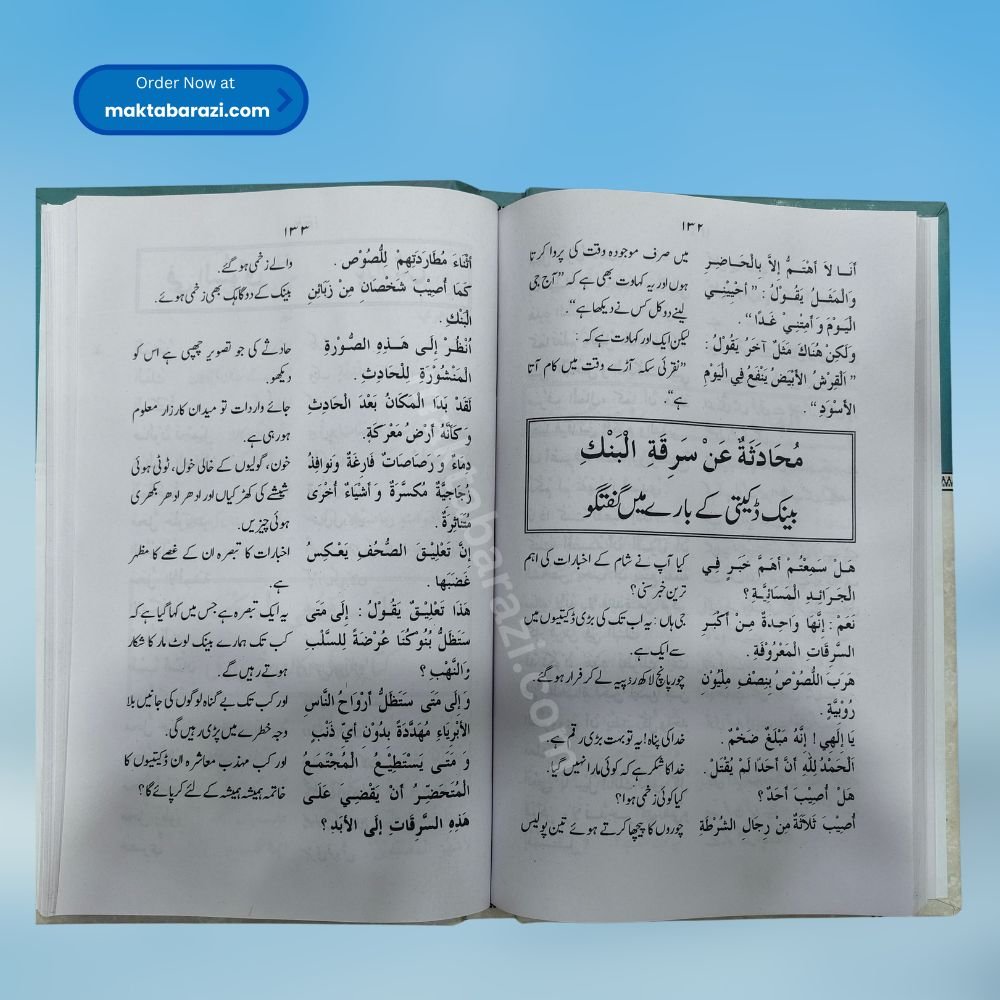 Order Now at
maktabarazi.com
١٣٢
أَنَا لاَ أَهْتَمُّ إِلاَّ بِالْحَاضِرِ
وَالْمَثَلُ يَقُوْلُ : " أَحْيِيْنِيْ
الْيَوْمَ وَ أَمِتْنِيْ غَدًا " .
وَلَكِنْ هُنَاكَ مَثَلٌ آخَرُ يَقُوْلُ :
" اَلْقِرْشُ الأَبْيَضُ يَنْفَعُ فِي الْيَوْمِ
الأَسْوَدِ " .
میں صرف موجودہ وقت کی پروا کرتا
ہوں اور یہ کہاوت بھی ہے کہ " آج جی
لینے دو کل کس نے دیکھا ہے " ۔
لیکن ایک اور کہاوت ہے کہ :
" نقرئی سکہ آڑے وقت میں کام آتا
ہے " ۔
مُحَادَثَةٌ عَنْ سَرِقَةِ الْبَنْكِ
بینک ڈکیتی کے بارے میں گفتگو
هَلْ سَمِعْتُمْ أَهَمَّ خَبَرٍ فِي
الْجَرَائِدِ الْمَسَائِيَّةِ ؟
نَعَمْ : إِنَّهَا وَاحِدَةٌ مِنْ أَكْبَرِ
السَّرِقَاتِ الْمَعْرُوْفَةِ .
هَرَبَ اللُّصُوْصُ بِنِصْفِ مِلْيُوْنِ
رُوْبِيَّةٍ .
يَا إِلَهِي ! إِنَّهُ مَبْلَغٌ ضَخْمٌ .
اَلْحَمْدُ لِلّٰهِ أَنَّ أَحَدًا لَمْ يُقْتَلْ .
هَلْ أُصِيْبَ أَحَدٌ ؟
أُصِيْبَ ثَلاَثَةٌ مِنْ رِجَالِ الشُّرْطَةِ
کیا آپ نے شام کے اخبارات کی اہم
ترین خبر سنی ؟
جی ہاں : یہ اب تک کی بڑی ڈکیتیوں میں
سے ایک ہے ۔
چور پانچ لاکھ روپیہ لے کر فرار ہو گئے ۔
خدا کی پناہ ! یہ تو بہت بڑی رقم ہے ۔
خدا کا شکر ہے کہ کوئی مارا نہیں گیا ۔
کیا کوئی زخمی ہوا ؟
چوروں کا پیچھا کرتے ہوئے تین پولیس
١٣٣
أَثْنَاءَ مُطَارَدَتِهِمْ لِلُّصُوْصِ .
كَمَا أُصِيْبَ شَخْصَانِ مِنْ زَبَائِنِ
الْبَنْكِ .
أُنْظُرْ إِلَى هَذِهِ الصُّوْرَةِ
الْمَنْشُوْرَةِ لِلْحَادِثِ .
لَقَدْ بَدَا الْمَكَانُ بَعْدَ الْحَادِثِ
وَ كَأَنَّهُ أَرْضُ مَعْرَكَةٍ .
دِمَاءٌ وَ رَصَاصَاتٌ فَارِغَةٌ وَنَوَافِذُ
زُجَاجِيَّةٌ مُكَسَّرَةٌ وَ أَشْيَاءٌ أُخْرَى
مُتَنَاثِرَةٌ .
إِنَّ تَعْلِيْقَ الصُّحُفِ يَعْكِسُ
غَضَبَهَا .
هَذَا تَعْلِيْقٌ يَقُوْلُ : إِلَى مَتَى
سَتَظَلُّ بُنُوْكُنَا عُرْضَةً لِلسَّلْبِ
وَالنَّهْبِ ؟
وَ إِلَى مَتَى سَتَظَلُّ أَرْوَاحُ النَّاسِ
الأَبْرِيَاءِ مُهَدَّدَةً بِدُوْنِ أَيِّ ذَنْبٍ
وَ مَتَى يَسْتَطِيْعُ الْمُجْتَمَعُ
الْمُتَحَضِّرُ أَنْ يَقْضِيَ عَلَى
هَذِهِ السَّرِقَاتِ إِلَى الأَبَدِ ؟
والے زخمی ہو گئے ۔
بینک کے دو گاہک بھی زخمی ہوئے ۔
حادثے کی جو تصویر چھپی ہے اس کو
دیکھو ۔
جائے واردات تو میدان کارزار معلوم
ہو رہی ہے ۔
خون، گولیوں کے خالی خول، ٹوٹی ہوئی
شیشے کی کھڑکیاں اور ادھر ادھر بکھری
ہوئی چیزیں ۔
اخبارات کا تبصرہ ان کے غصے کا مظہر
ہے ۔
یہ ایک تبصرہ ہے جس میں کہا گیا ہے کہ
کب تک ہمارے بینک لوٹ مار کا شکار
ہوتے رہیں گے ۔
اور کب تک بے گناہ لوگوں کی جانیں بلا
وجہ خطرے میں پڑی رہیں گی ۔
اور کب مہذب معاشرہ ان ڈکیتیوں کا
خاتمہ ہمیشہ ہمیشہ کے لئے کر پائے گا ؟
maktabarazi.com